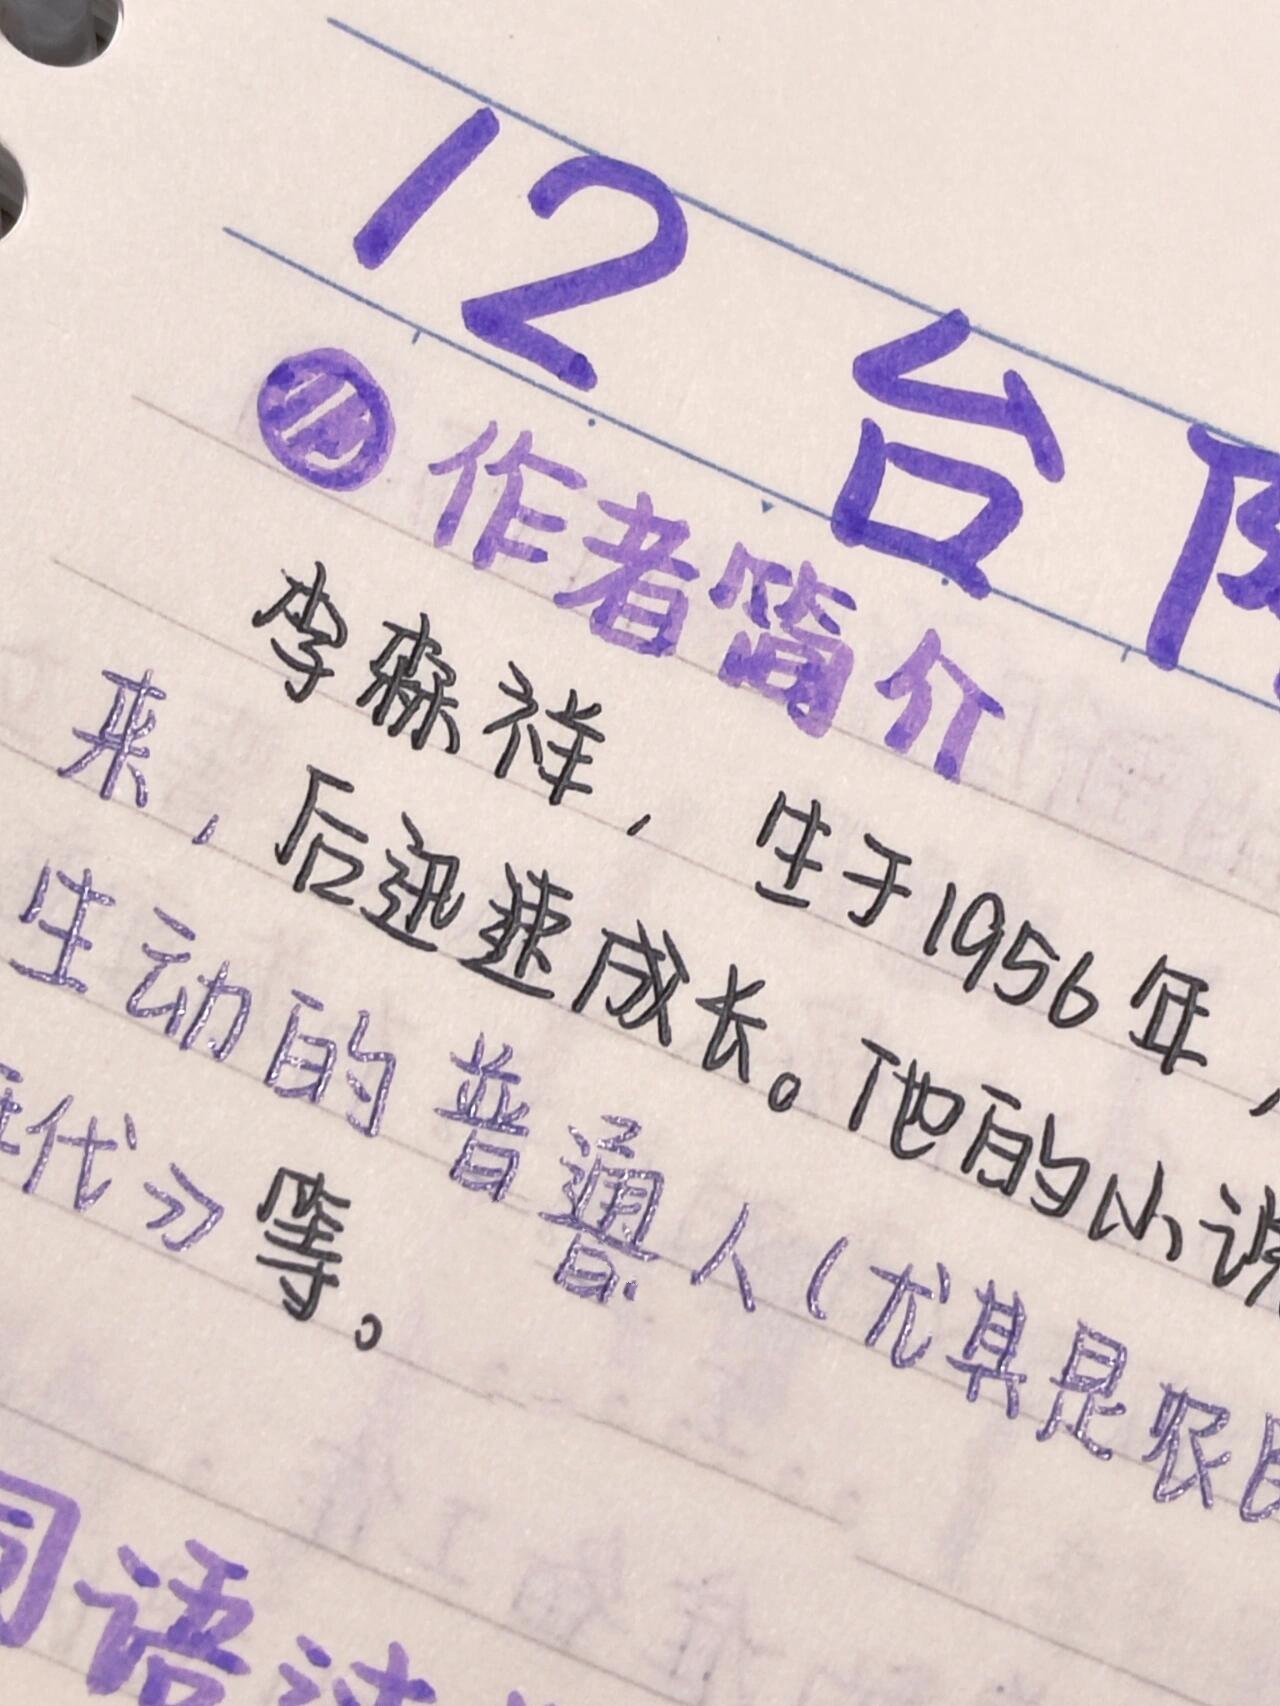 12 台阶
作者简介
李森祥，生于1956年，
来，后迅速成长。他的小说
生动的普通人（尤其是农民
年代》等。
词语过